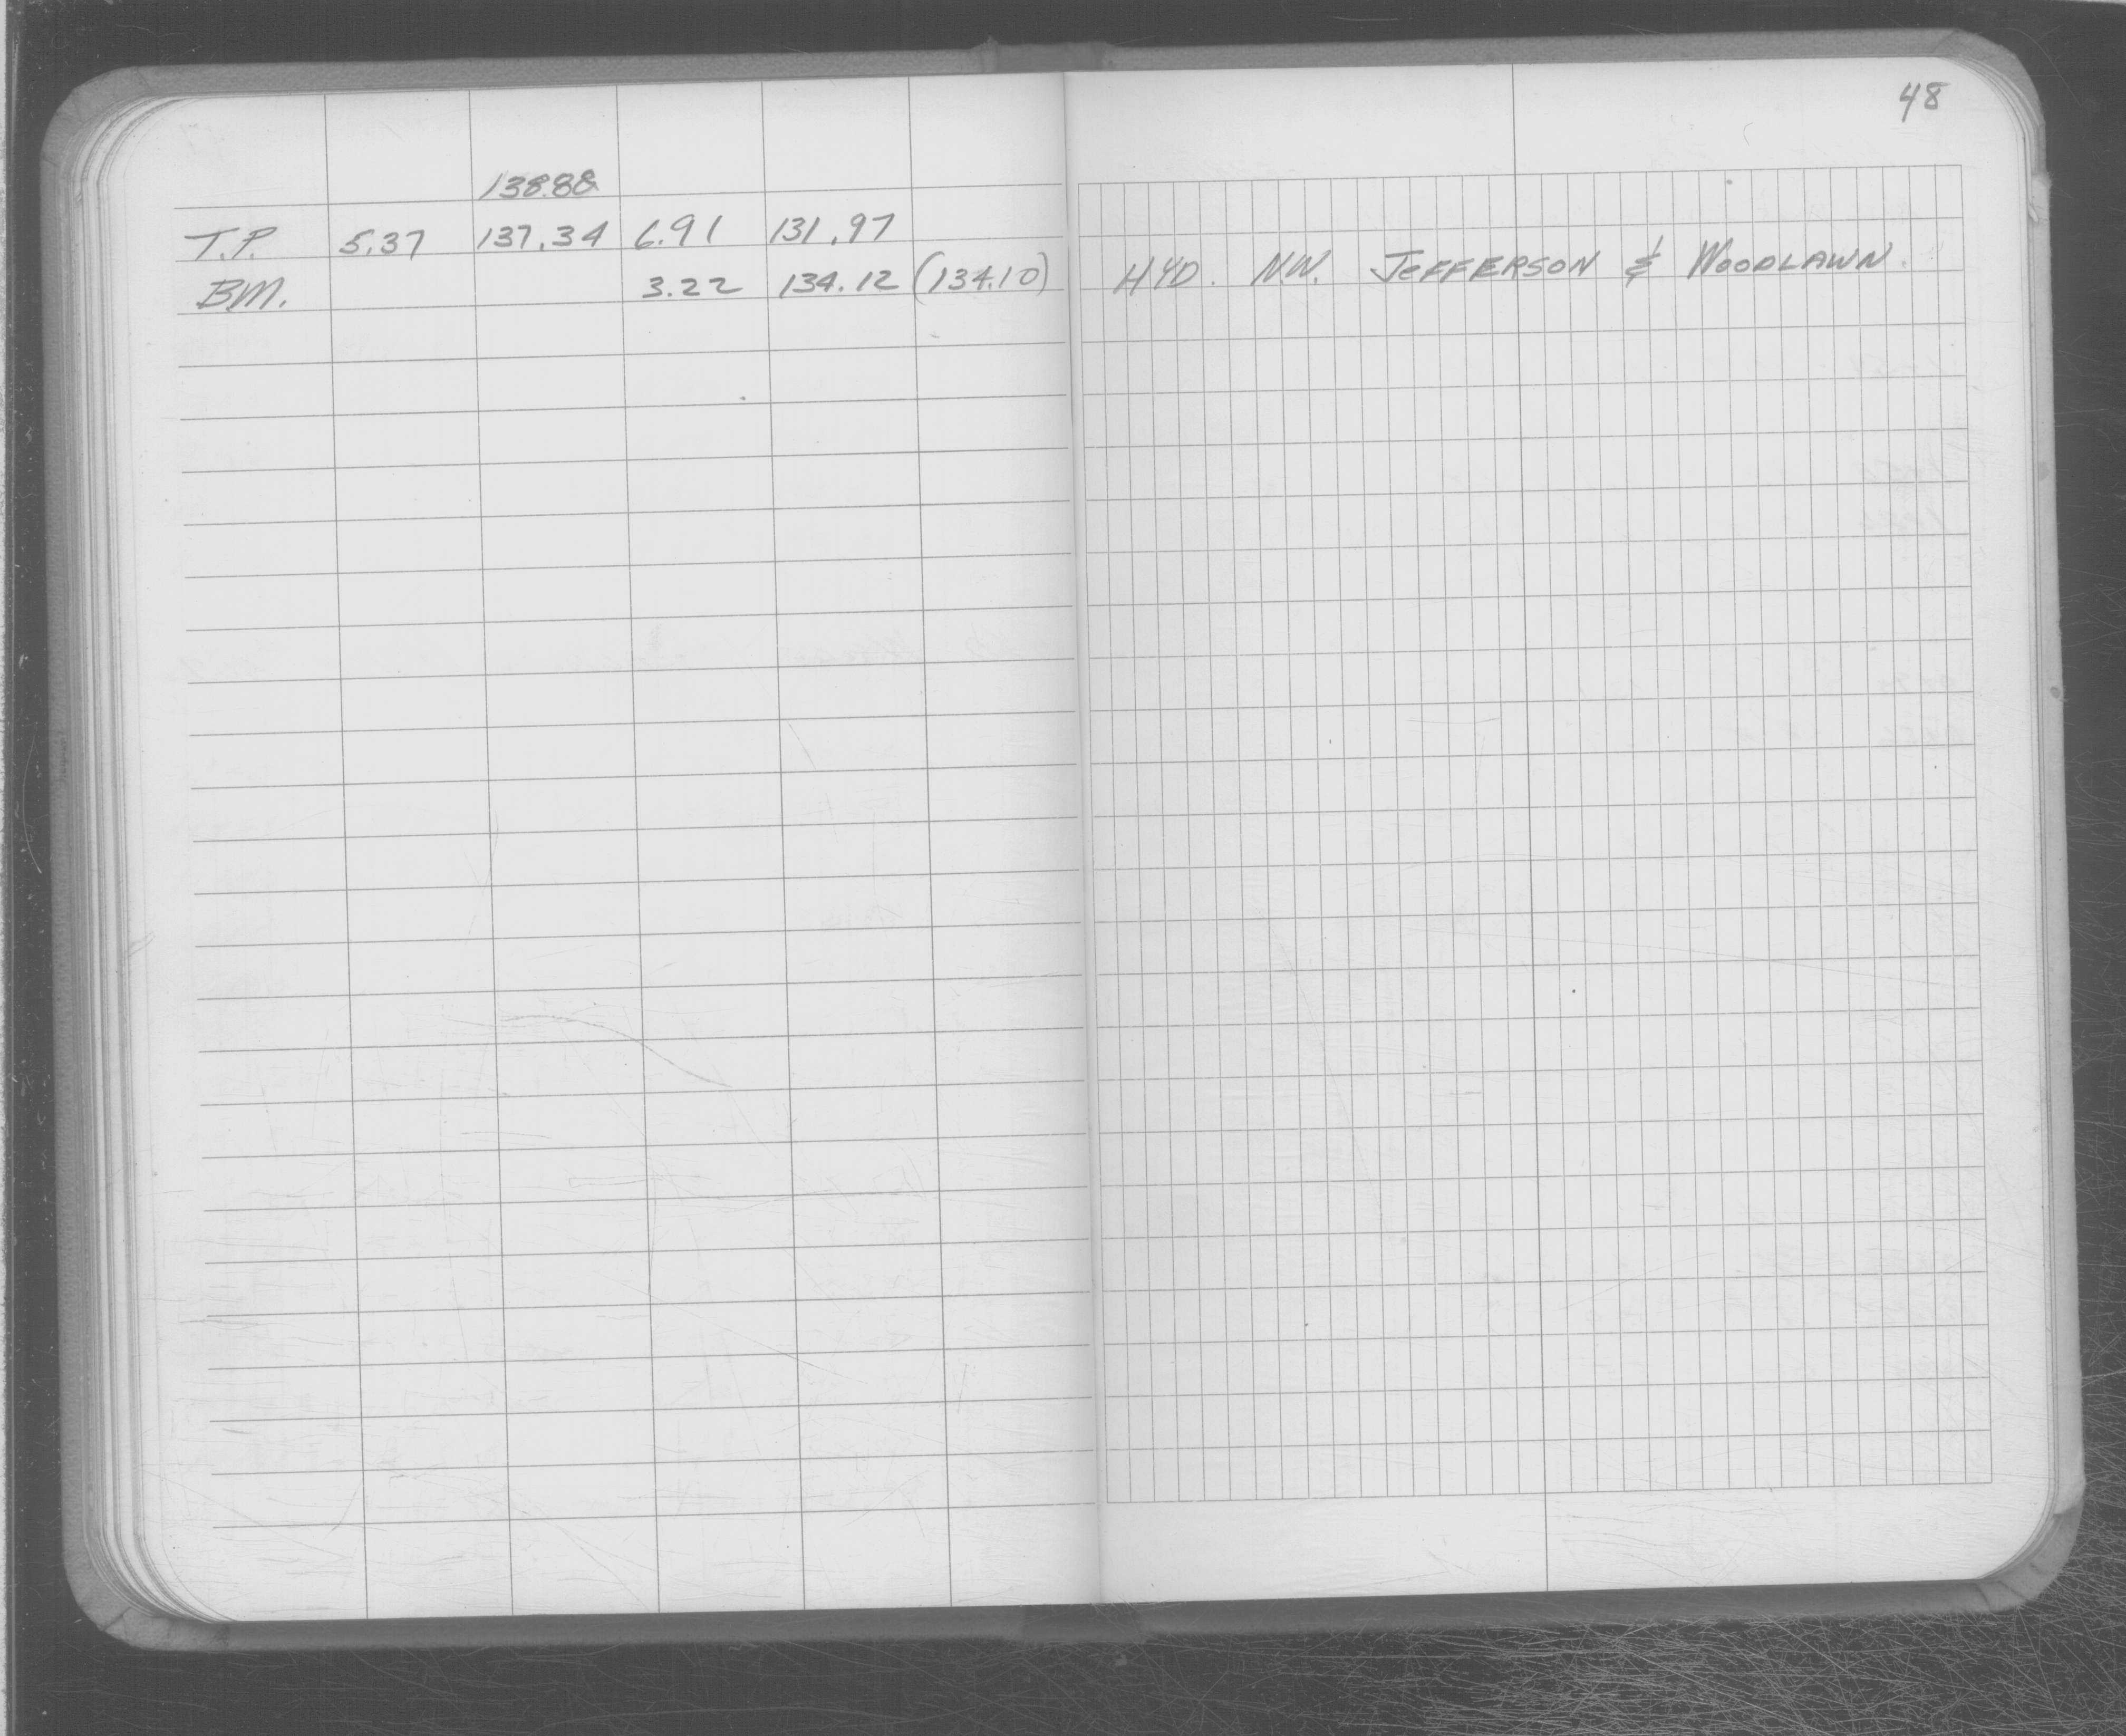 48
138.88
T.P. 5.37 137.34 6.91 131.97
BM. 3.22 134.12 (134.10) HYD. N.W. JEFFERSON & WOODLAWN.